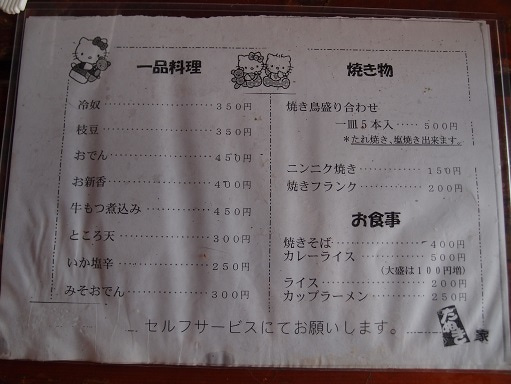 一品料理
冷奴 350円
枝豆 350円
おでん 450円
お新香 400円
牛もつ煮込み 450円
ところ天 300円
いか塩辛 250円
みそおでん 300円
焼き物
焼き鳥盛り合わせ
一皿5本入 500円
*たれ焼き、塩焼き出来ます。
ニンニク焼き 150円
焼きフランク 200円
お食事
焼きそば 400円
カレーライス 500円
(大盛は100円増)
ライス 200円
カップラーメン 250円
セルフサービスにてお願いします。
たぬき家